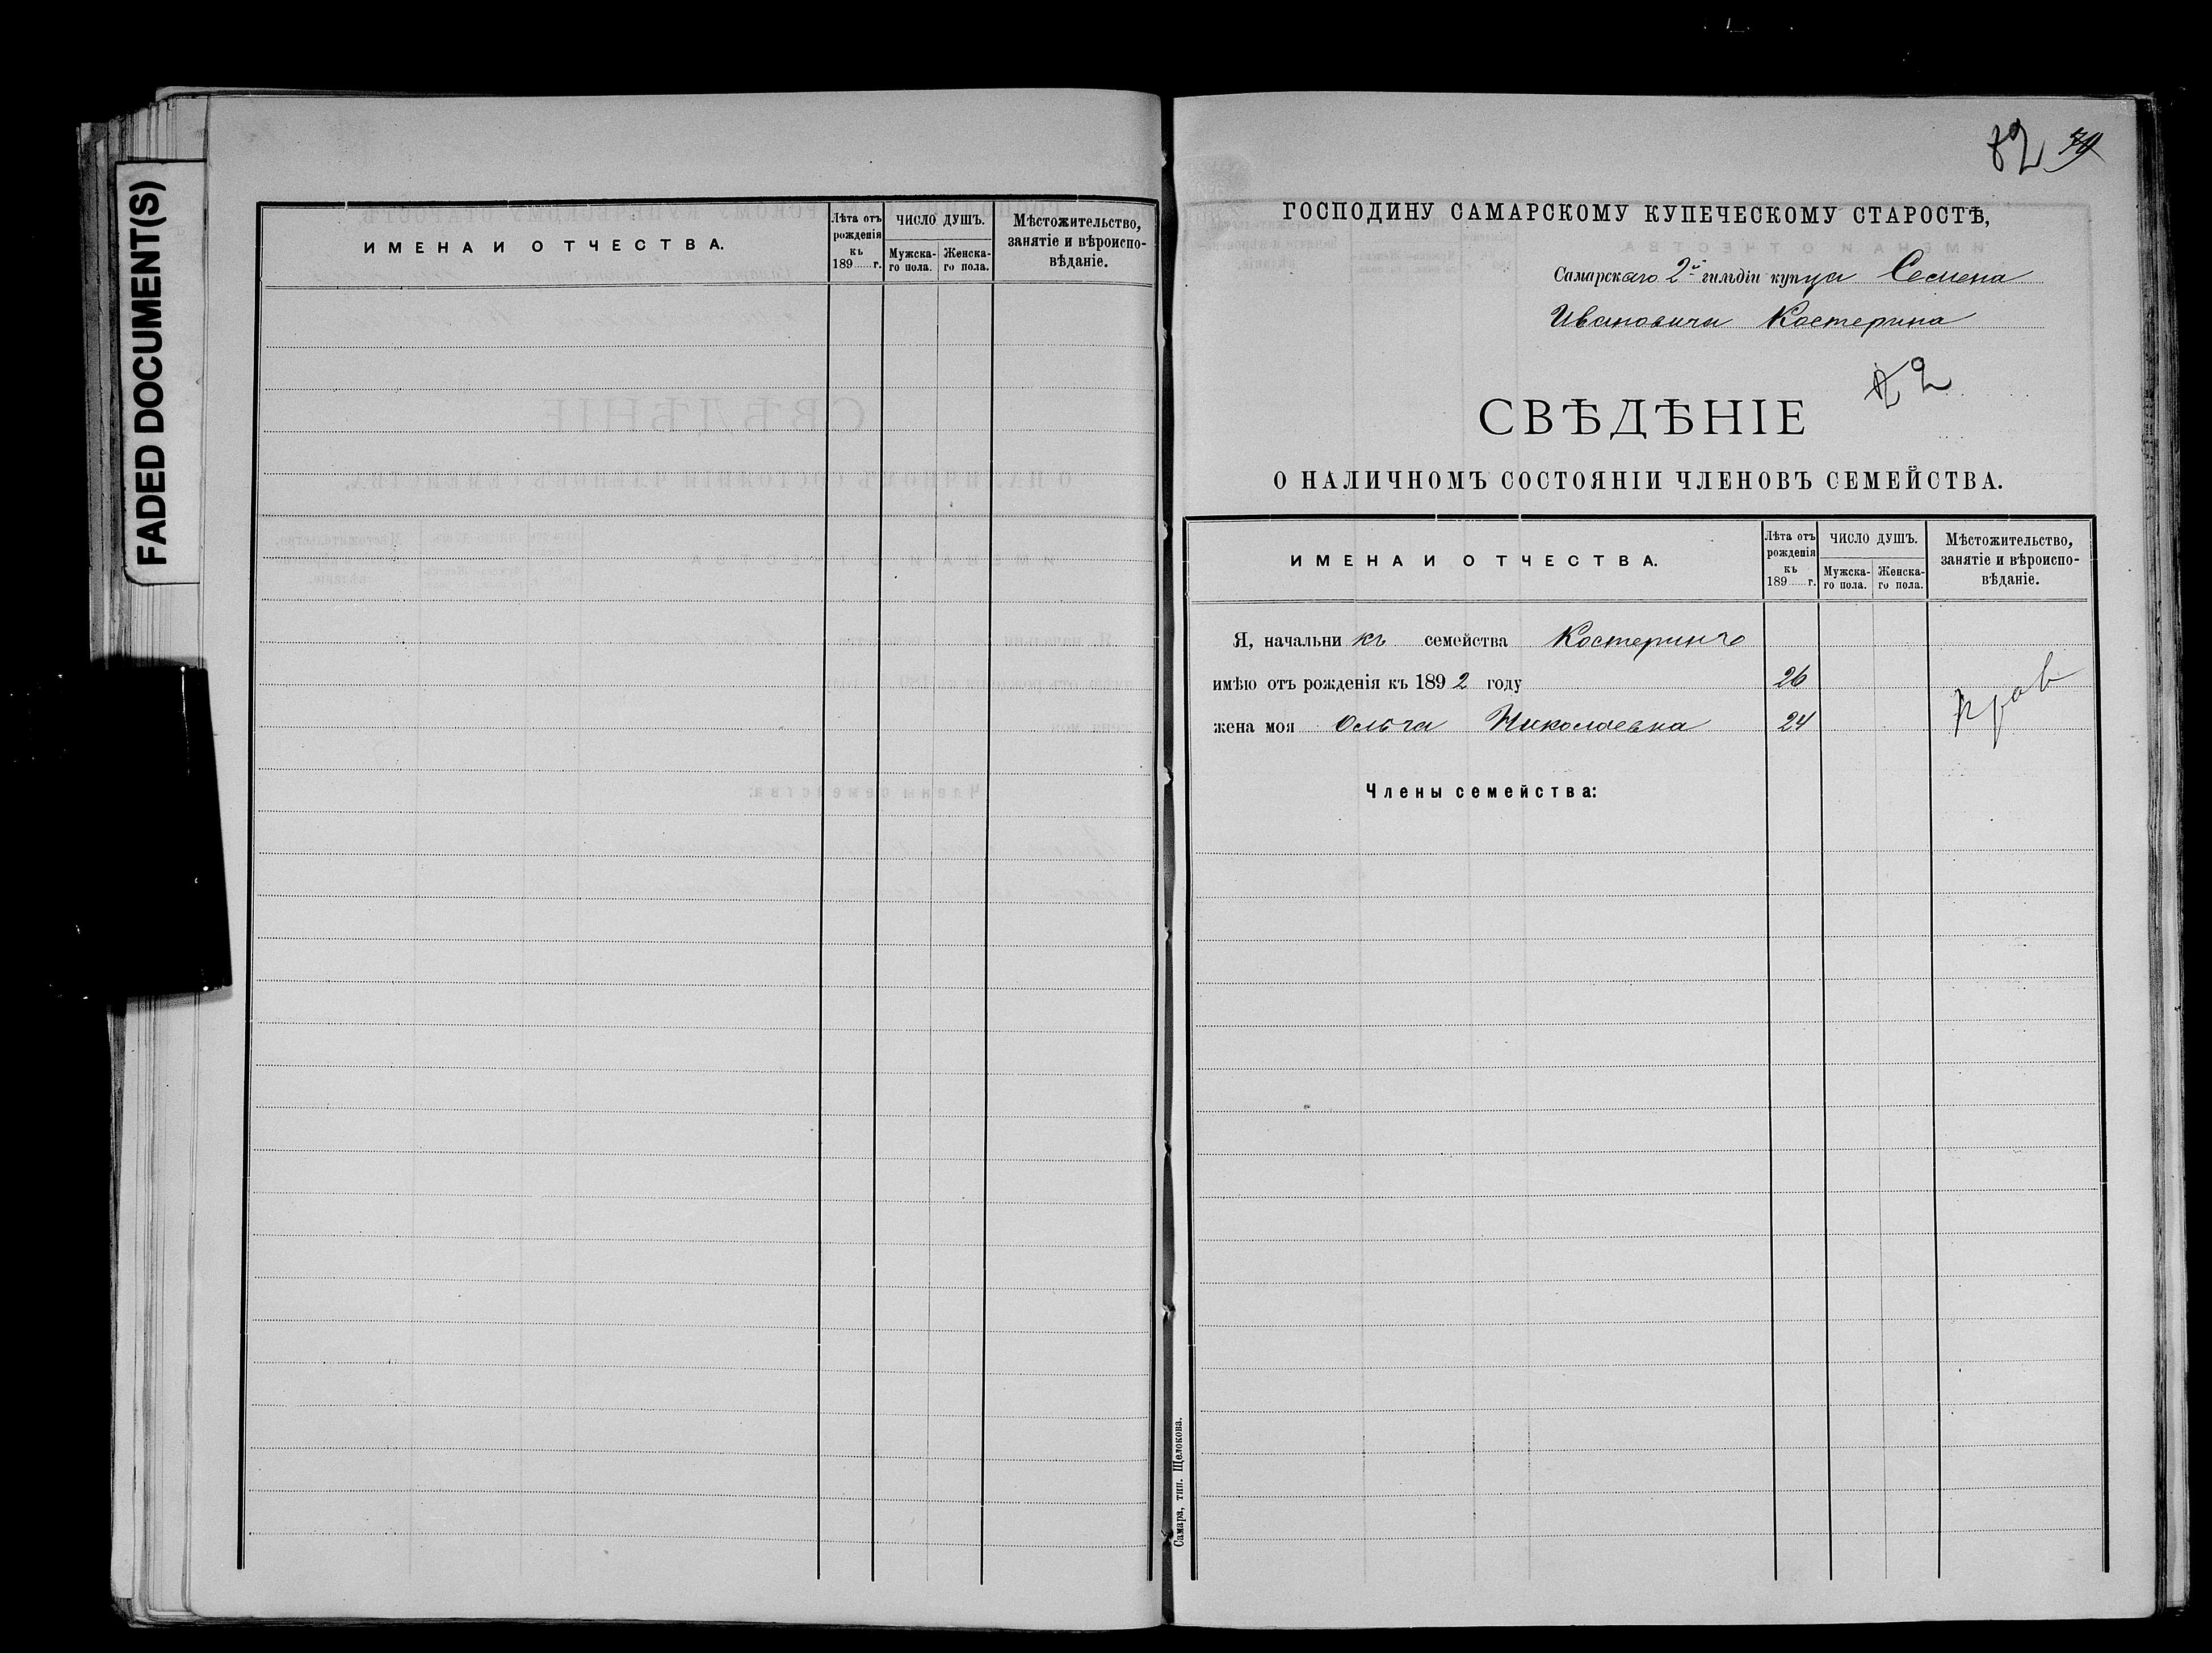 FADED DOCUMENT(S)
ИМЕНА И ОТЧЕСТВА.
Лѣта отъ рожденія къ 189......г.
ЧИСЛО ДУШЪ.
Мужска-го пола.
Женска-го пола.
Мѣстожительство, занятіе и вѣроиспо-вѣданіе.
82 79
ГОСПОДИНУ САМАРСКОМУ КУПЕЧЕСКОМУ СТАРОСТѢ,
Самарскаго 2й гильдіи купца Семена
Ивановича Костерина
СВѢДѢНІЕ
О НАЛИЧНОМЪ СОСТОЯНІИ ЧЛЕНОВЪ СЕМЕЙСТВА.
ИМЕНА И ОТЧЕСТВА.
Лѣта отъ рожденія къ 189......г.
ЧИСЛО ДУШЪ.
Мужска-го пола.
Женска-го пола.
Мѣстожительство, занятіе и вѣроиспо-вѣданіе.
Я, начальникъ семейства
имѣю отъ рожденія къ 1892 году 26
жена моя Ольга Николаевна 24
прав
Члены семейства:
Самара, тип. Щелокова.